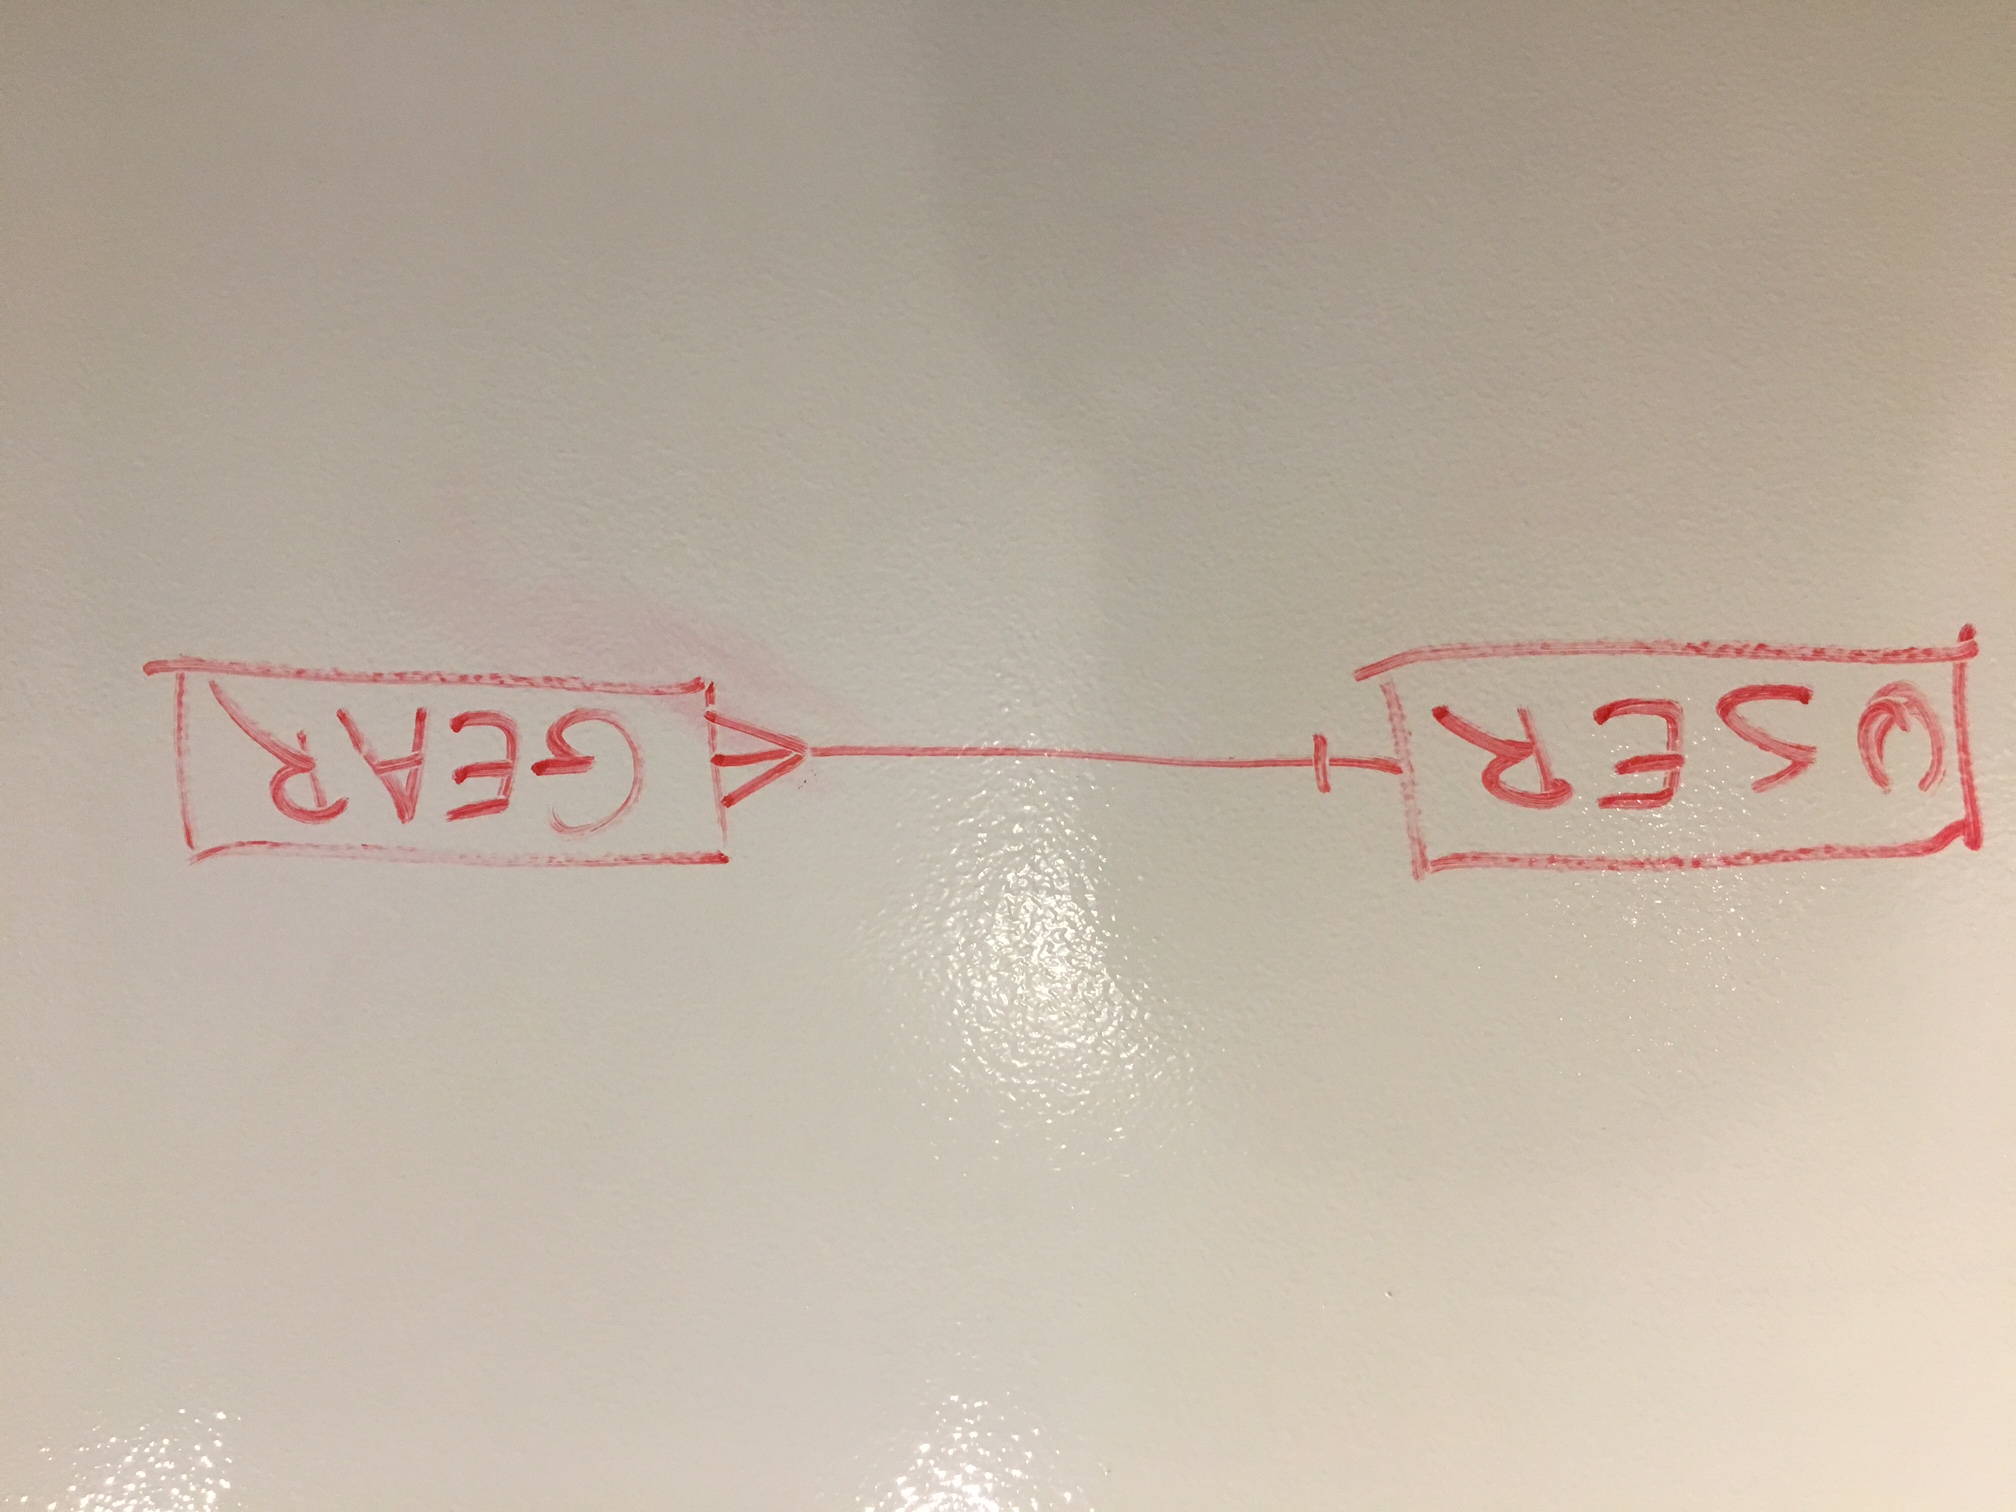 USER
GEAR